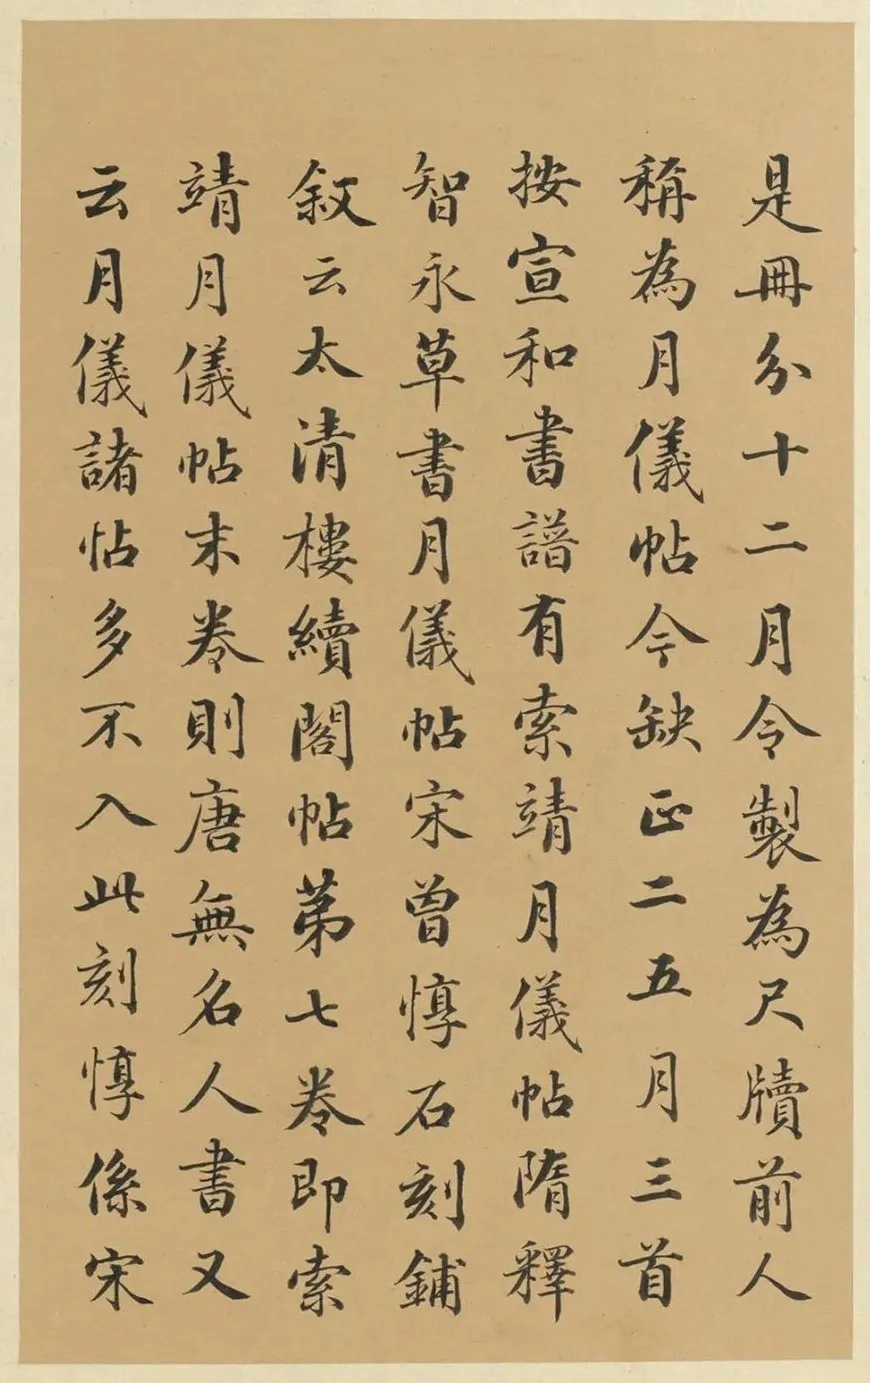 是冊分十二月令製為尺牘前人
稱為月儀帖今缺正二五月三首
按宣和書譜有索靖月儀帖隋釋
智永草書月儀帖宋曾惇石刻鋪
叙云太清樓續閣帖第七卷即索
靖月儀帖末卷則唐無名人書又
云月儀諸帖多不入此刻惇係宋